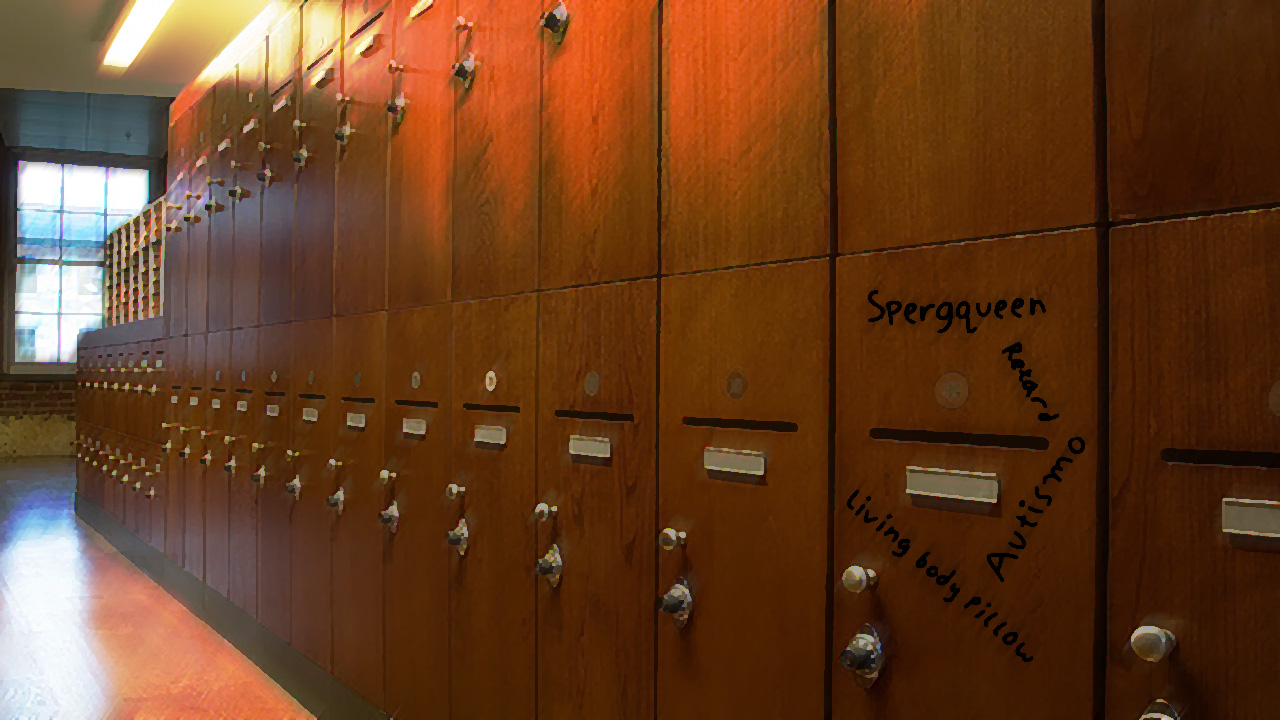 Spergqueen
Retard
Autismo
Living body pillow